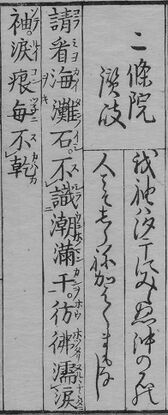 二條院
讚岐
我袖ハ汐干にみえぬ沖の石の
人こそしらねかはくまもなし
請看海灘石。不識潮滿干。彷彿濡涙
袖。淚痕毎不乾